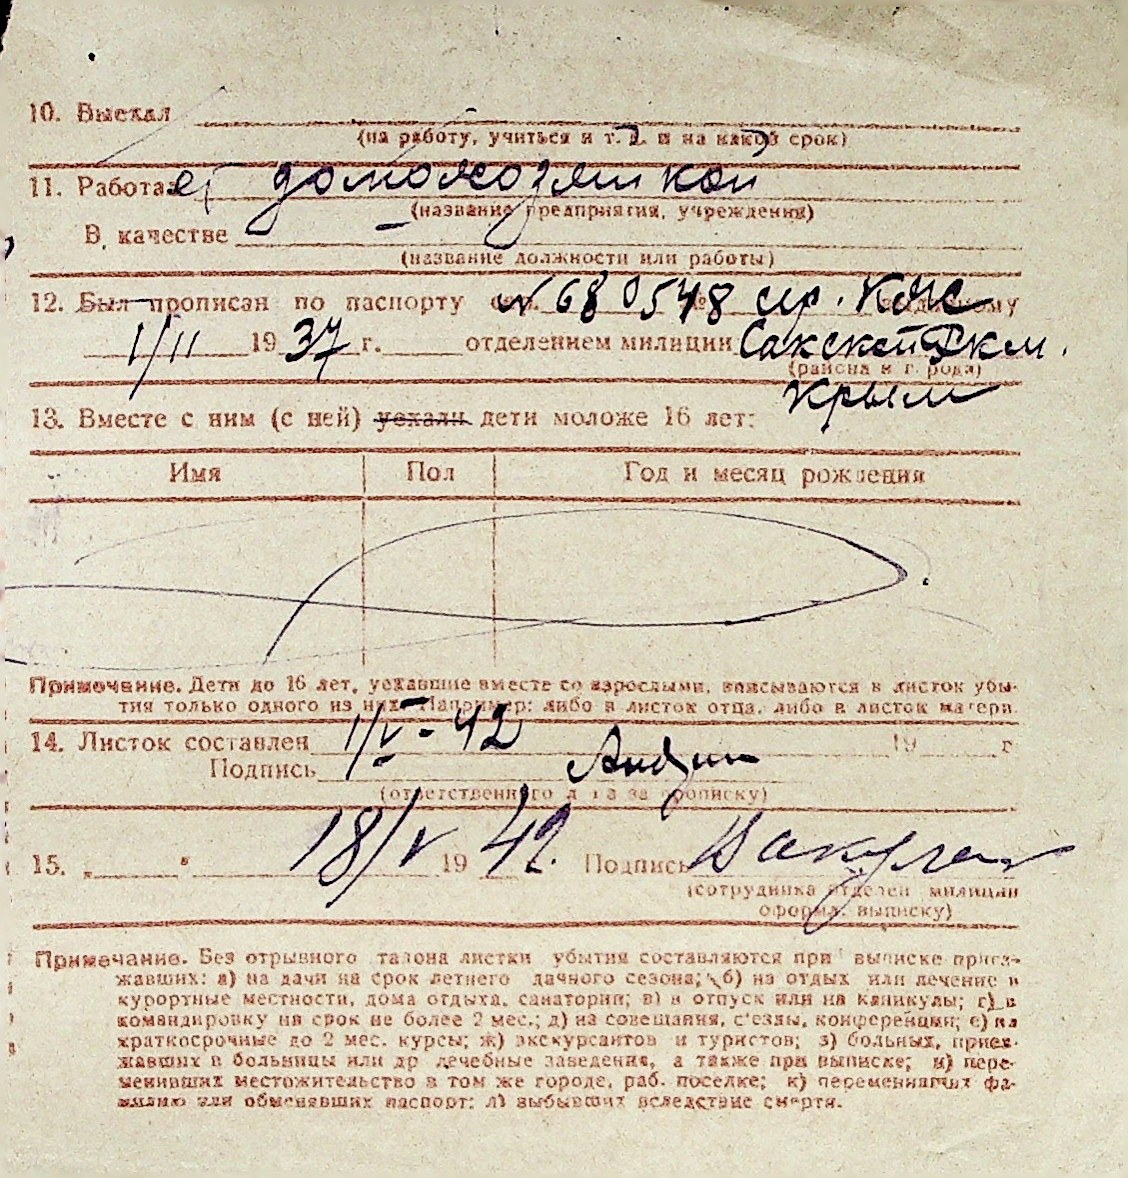 10. Выехал
(на работу, учиться и т. д. и на какой срок)
11. Работает домохозяйкой
(название предприятия, учреждения)
В качестве
(название должности или работы)
12. Был прописан по паспорту сер. N 680548 № выданному
1/II 1937 г. отделением милиции Сакской
(района и города)
Крым
13. Вместе с ним (с ней) уехали дети моложе 16 лет:
Имя Пол Год и месяц рождения
Примечание. Дети до 16 лет, уехавшие вместе со взрослыми, вписываются в листок убы-
тия только одного из них. Например: либо в листок отца, либо в листок матери.
14. Листок составлен 1/V-42 19 г.
Подпись
(ответственного лица за прописку)
15. „ " 18/V 1942. Подпись
(сотрудника отделен. милиции
оформл. выписку)
Примечание. Без отрывного талона листки убытия составляются при выписке приез-
жавших: а) на дачи на срок летнего дачного сезона; б) на отдых или лечение в
курортные местности, дома отдыха, санатории; в) в отпуск или на каникулы; г) в
командировку на срок не более 2 мес.; д) на совещания, съезды, конференции; е) на
краткосрочные до 2 мес. курсы; ж) экскурсантов и туристов; з) больных, приез-
жавших в больницы или др. лечебные заведения, а также при выписке; и) пере-
менивших местожительство в том же городе, раб. поселке; к) переменивших фа-
милию или обменявших паспорт; л) выбывших вследствие смерти.